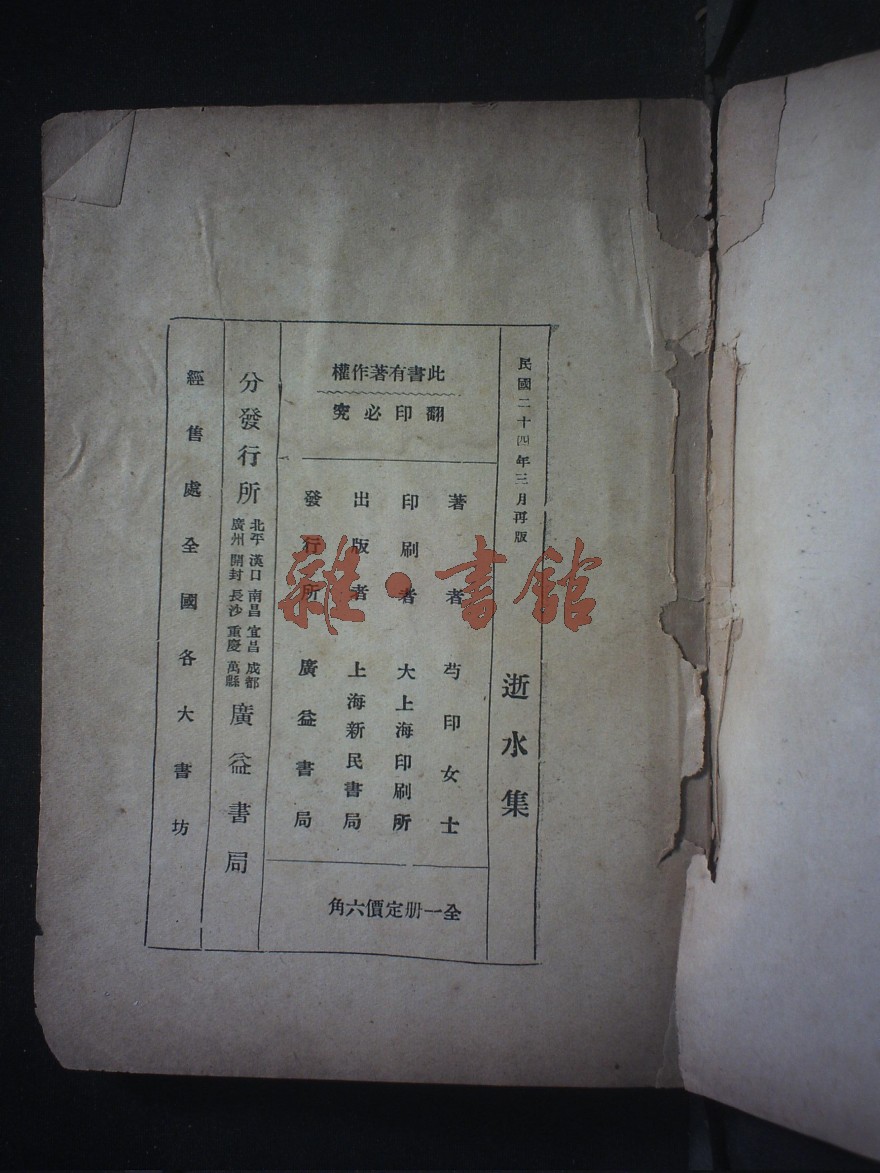 民國二十四年三月再版
逝水集
此書有著作權
翻印必究
著者 芍印女士
印刷者 大上海印刷所
出版者 上海新民書局
發行所 廣益書局
全一册定價六角
分發行所
北平 漢口 南昌 宜昌 成都
廣州 開封 長沙 重慶 萬縣
廣益書局
經售處全國各大書坊
雜·書館